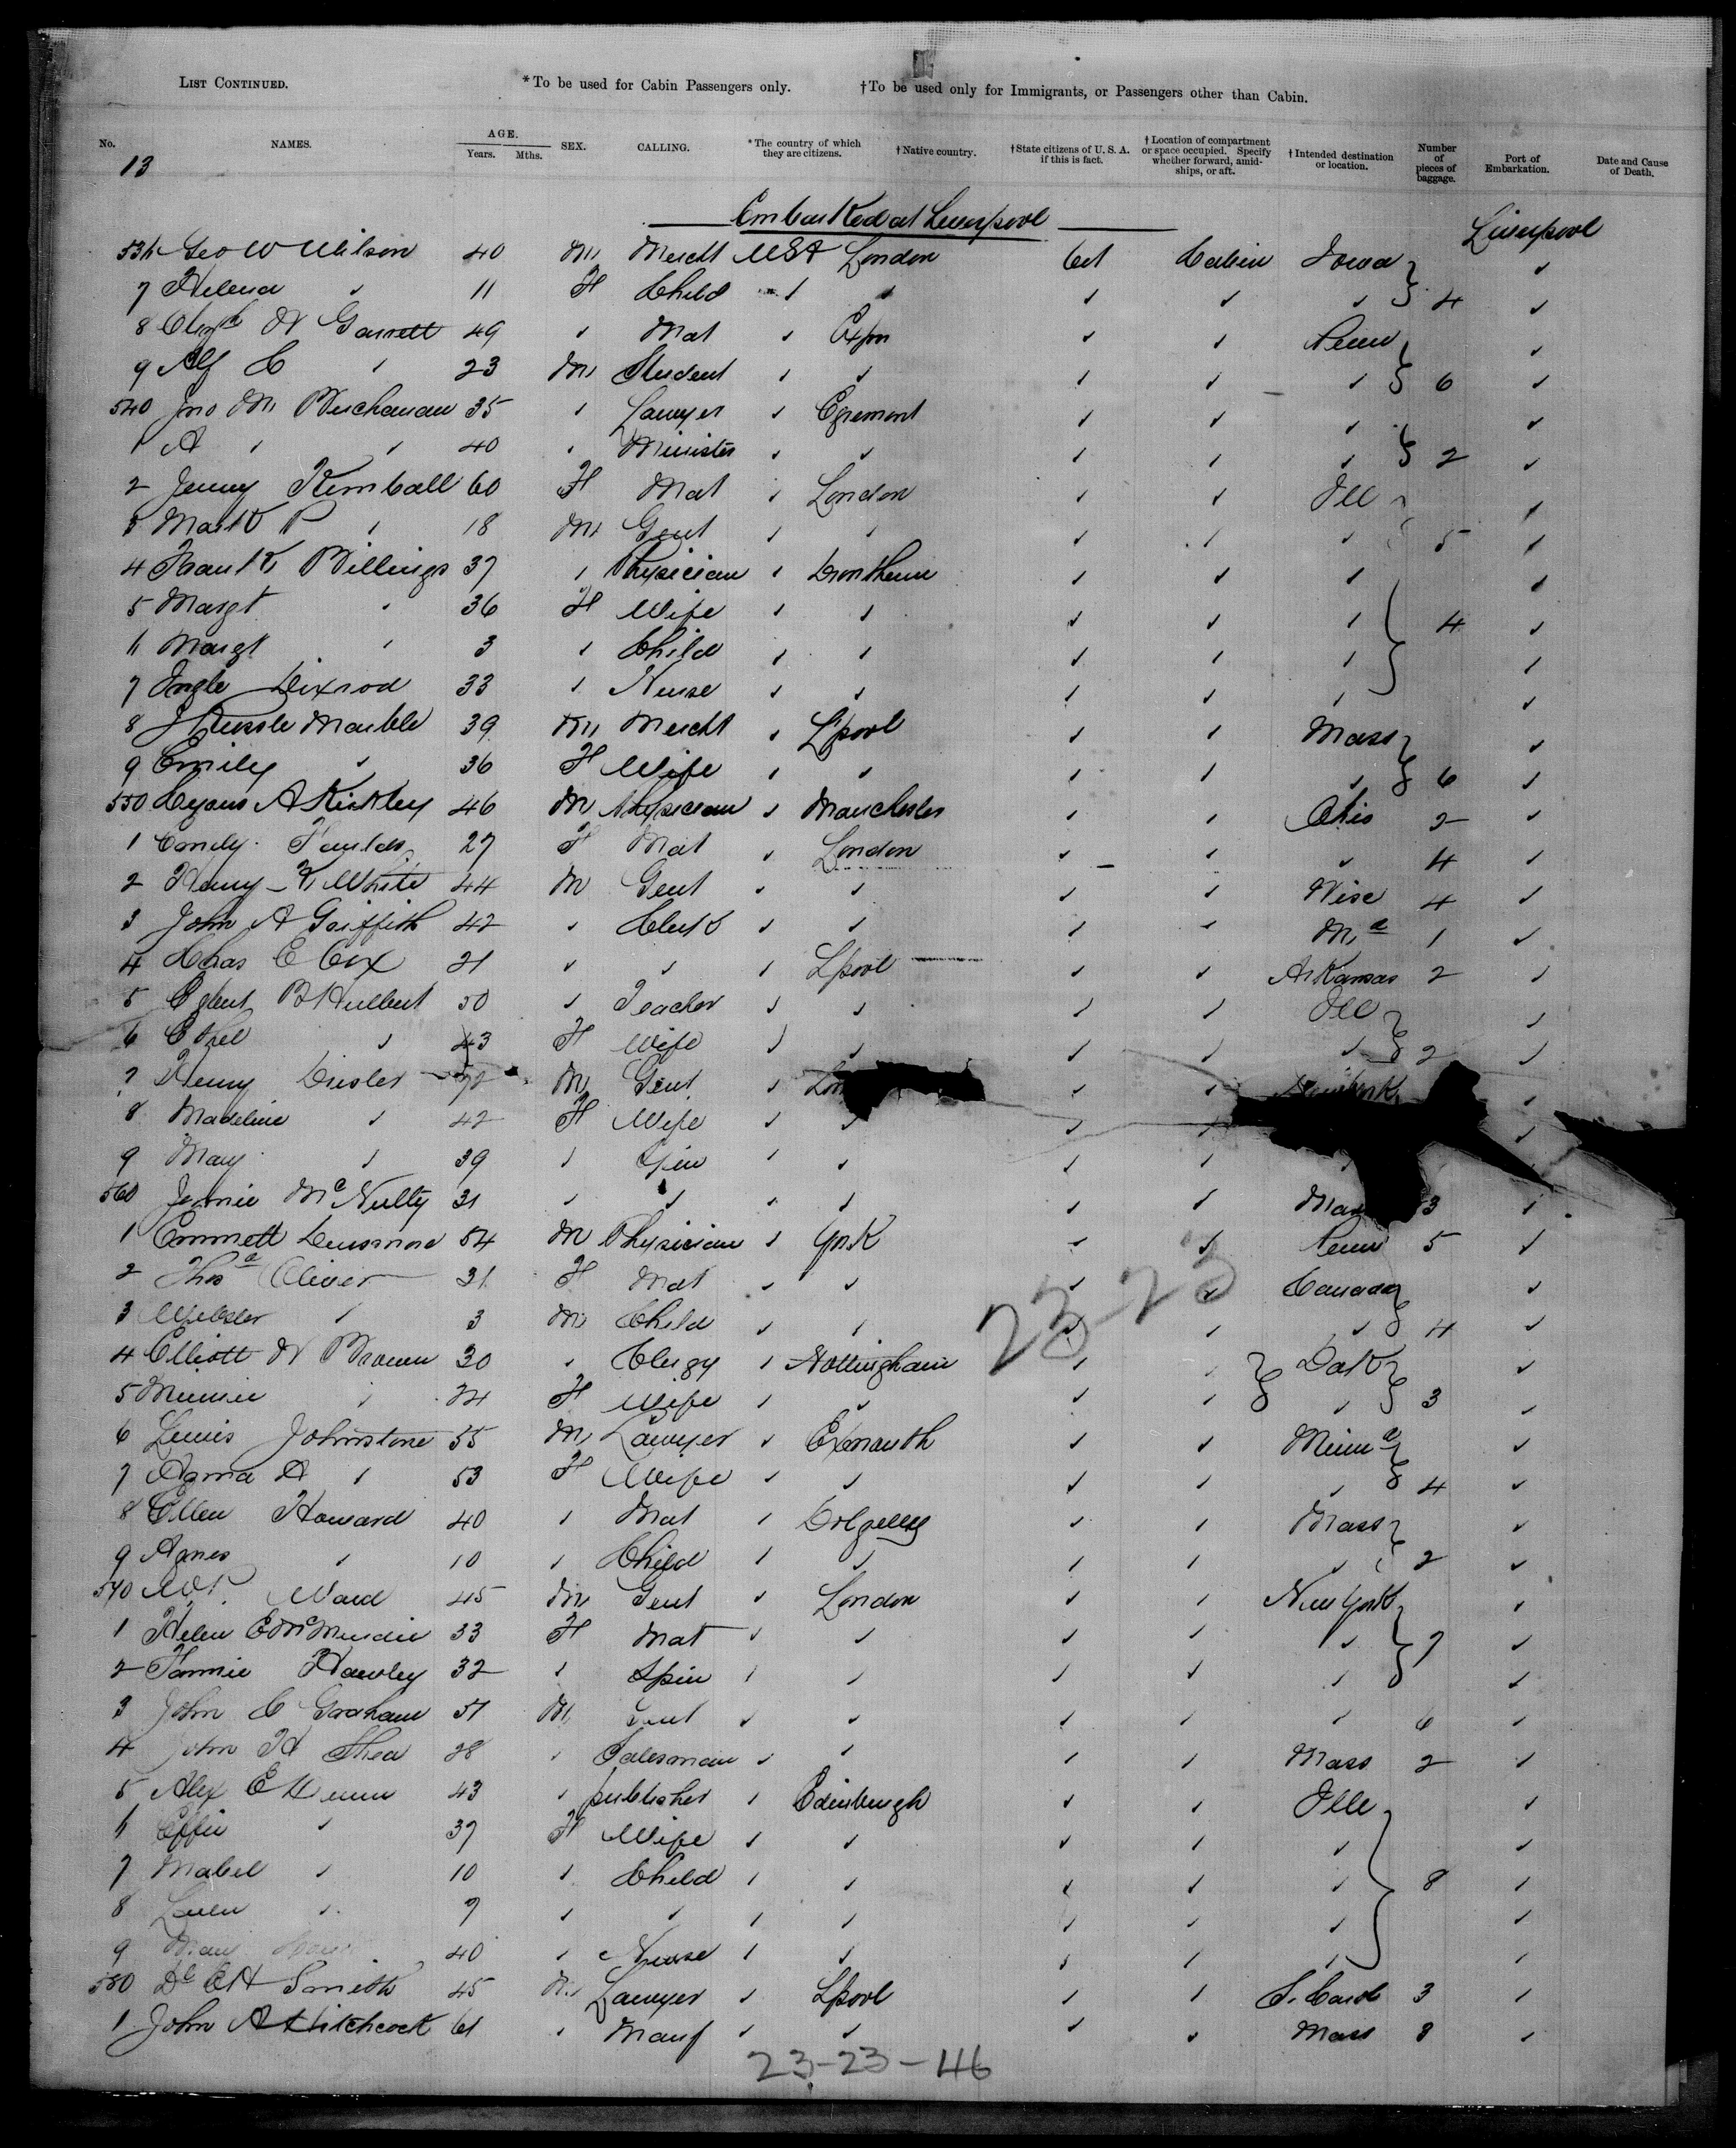 LIST CONTINUED. *To be used for Cabin Passengers only. †To be used only for Immigrants, or Passengers other than Cabin.
No. NAMES. AGE. Years. Mths. SEX. CALLING. *The country of which they are citizens. †Native country. †State citizens of U. S. A. if this is fact. †Location of compartment or space occupied. Specify whether forward, amidships, or aft. †Intended destination or location. Number of pieces of baggage. Port of Embarkation. Date and Cause of Death.
13
Embarked at Liverpool Liverpool
536 Geo W Wilson 40 M Mercht USA London Cit Cabin Iowa
7 Helena 11 F Child 4
8 Elizh N Garrett 49 Mat Penn
9 Alf C 23 M Student 6
540 Jno M Buchanan 35 Lawyer Egremont
1 A 40 Minister 2
2 Jenny Kimball 60 F Mat London Ill
3 Mark R 18 M Gent 5
4 Frank Billings 37 Physician Drontheim
5 Margt 36 F Wife 4
6 Margt 3 Child
7 Ingle 33 Nurse
8 J Russle Marble 39 M Mercht Lpool Mass
9 Emily 36 F Wife 6
550 A Kirkley 46 M Physician Manchester Ohio 2
1 Emily 27 F Mat London 4
2 Henry K White 44 M Gent Wisc 4
3 John A Griffith 42 Clerk Md 1
4 Chas E Cox 21 Lpool Arkansas 2
5 Egbert B Hulbert 50 Teacher Ill
6 Ethel 43 F Wife 2
7 Henry 72 M Gent Lon New York
8 Madeline 42 F Wife
9 Mary 39 Spin
560 Jennie McNulty 31 Mas 3
1 Emmett Densmore 54 M Physician York Penn 5
2 Thosa Oliver 31 F Mat Canada
3 Webster 3 M Child 4
23-23
4 Elliott W Brown 30 Clergy Nottingham Dak
5 Minnie 24 F Wife 3
6 Lewis Johnstone 55 M Lawyer Exmouth Minna
7 A 53 F Wife 4
8 Ellen Howard 40 Mat Dolgelly Mass
9 Agnes 10 Child 2
570 Ward 45 M Gent London New York
1 Helen E McMurdie 33 F Mat 7
2 Fannie Hawley 32 Spin
3 John C Graham 51 M Gent 6
4 John H Shea 28 Salesman Mass 2
5 Alex E 43 publisher Edinburgh Ill
6 Effie 37 F Wife
7 Mabel 10 Child 8
8 7
9 Mary 40 Nurse
580 EH Smith 45 M Lawyer Lpool S. Caro 3
1 John A Hitchcock 61 Manf Mass 3
23-23-46